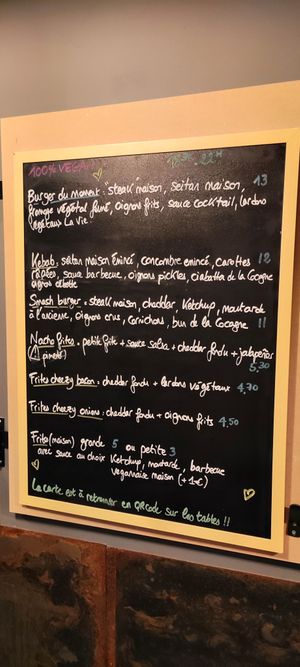 100% VEGAN
Burger du moment : "steak" maison, seitan maison, 13
fromage végétal fumé, oignon frits, sauce cocktail, lardons
végétaux La Vie
Kebab, seitan maison émincé, concombre émincé, carottes 12
râpées, sauce barbecue, oignons pickles, ciabatta de la Cocagne
oignon
Smash burger : steak maison, cheddar, ketchup, moutarde
à l'ancienne, oignons crus, cornichons, bun de la Cocagne 11
Nacho frites : petite frite + sauce salsa + cheddar fondu + jalapeños
piment) 5,30
Frites cheezy bacon : cheddar fondu + lardons végétaux 4,70
Frites cheezy onions : cheddar fondu + oignons frits 4,50
Frites (maison) grande 5 ou petite 3
avec sauce au choix ketchup, moutarde, barbecue
veganaise maison (+1€)
La carte est à retrouver en QRcode sur les tables !!